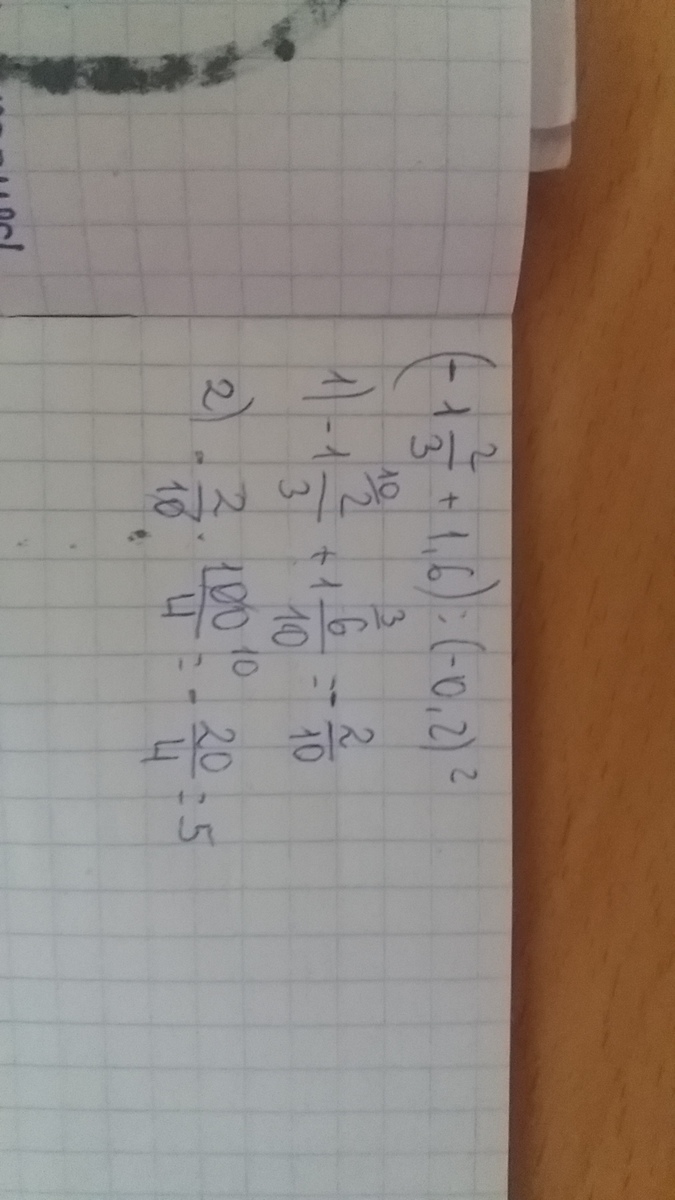 (-1 2/3 + 1,6) : (-0,2)²
1) -1 2/3 ^10 + 1 6/10 ^3 = - 2/10
2) - 2/10 · 100/4 ^10 = - 20/4 = 5